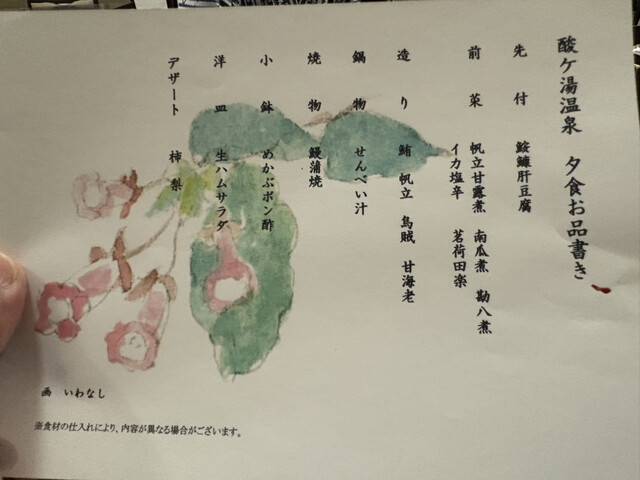 酸ケ湯温泉 夕食お品書き
先付 鮟鱇肝豆腐
前菜 帆立甘露煮 南瓜煮 勘八煮
イカ塩辛 茗荷田楽
造り 鮪 帆立 烏賊 甘海老
鍋物 せんべい汁
焼物 鰻蒲焼
小鉢 めかぶポン酢
洋皿 生ハムサラダ
デザート 柿 梨
画 いわなし
※食材の仕入れにより、内容が異なる場合がございます。